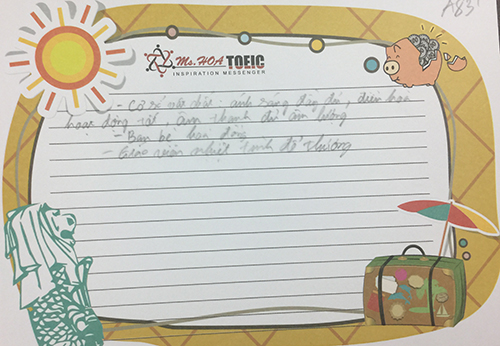 A83
Ms.HOA TOEIC
INSPIRATION MESSENGER
- Cơ sở vật chất: ánh sáng đầy đủ, điều hoà
hoạt động tốt, âm thanh đủ âm lượng
- Bạn bè năng động
- Giáo viên nhiệt tình dễ thương